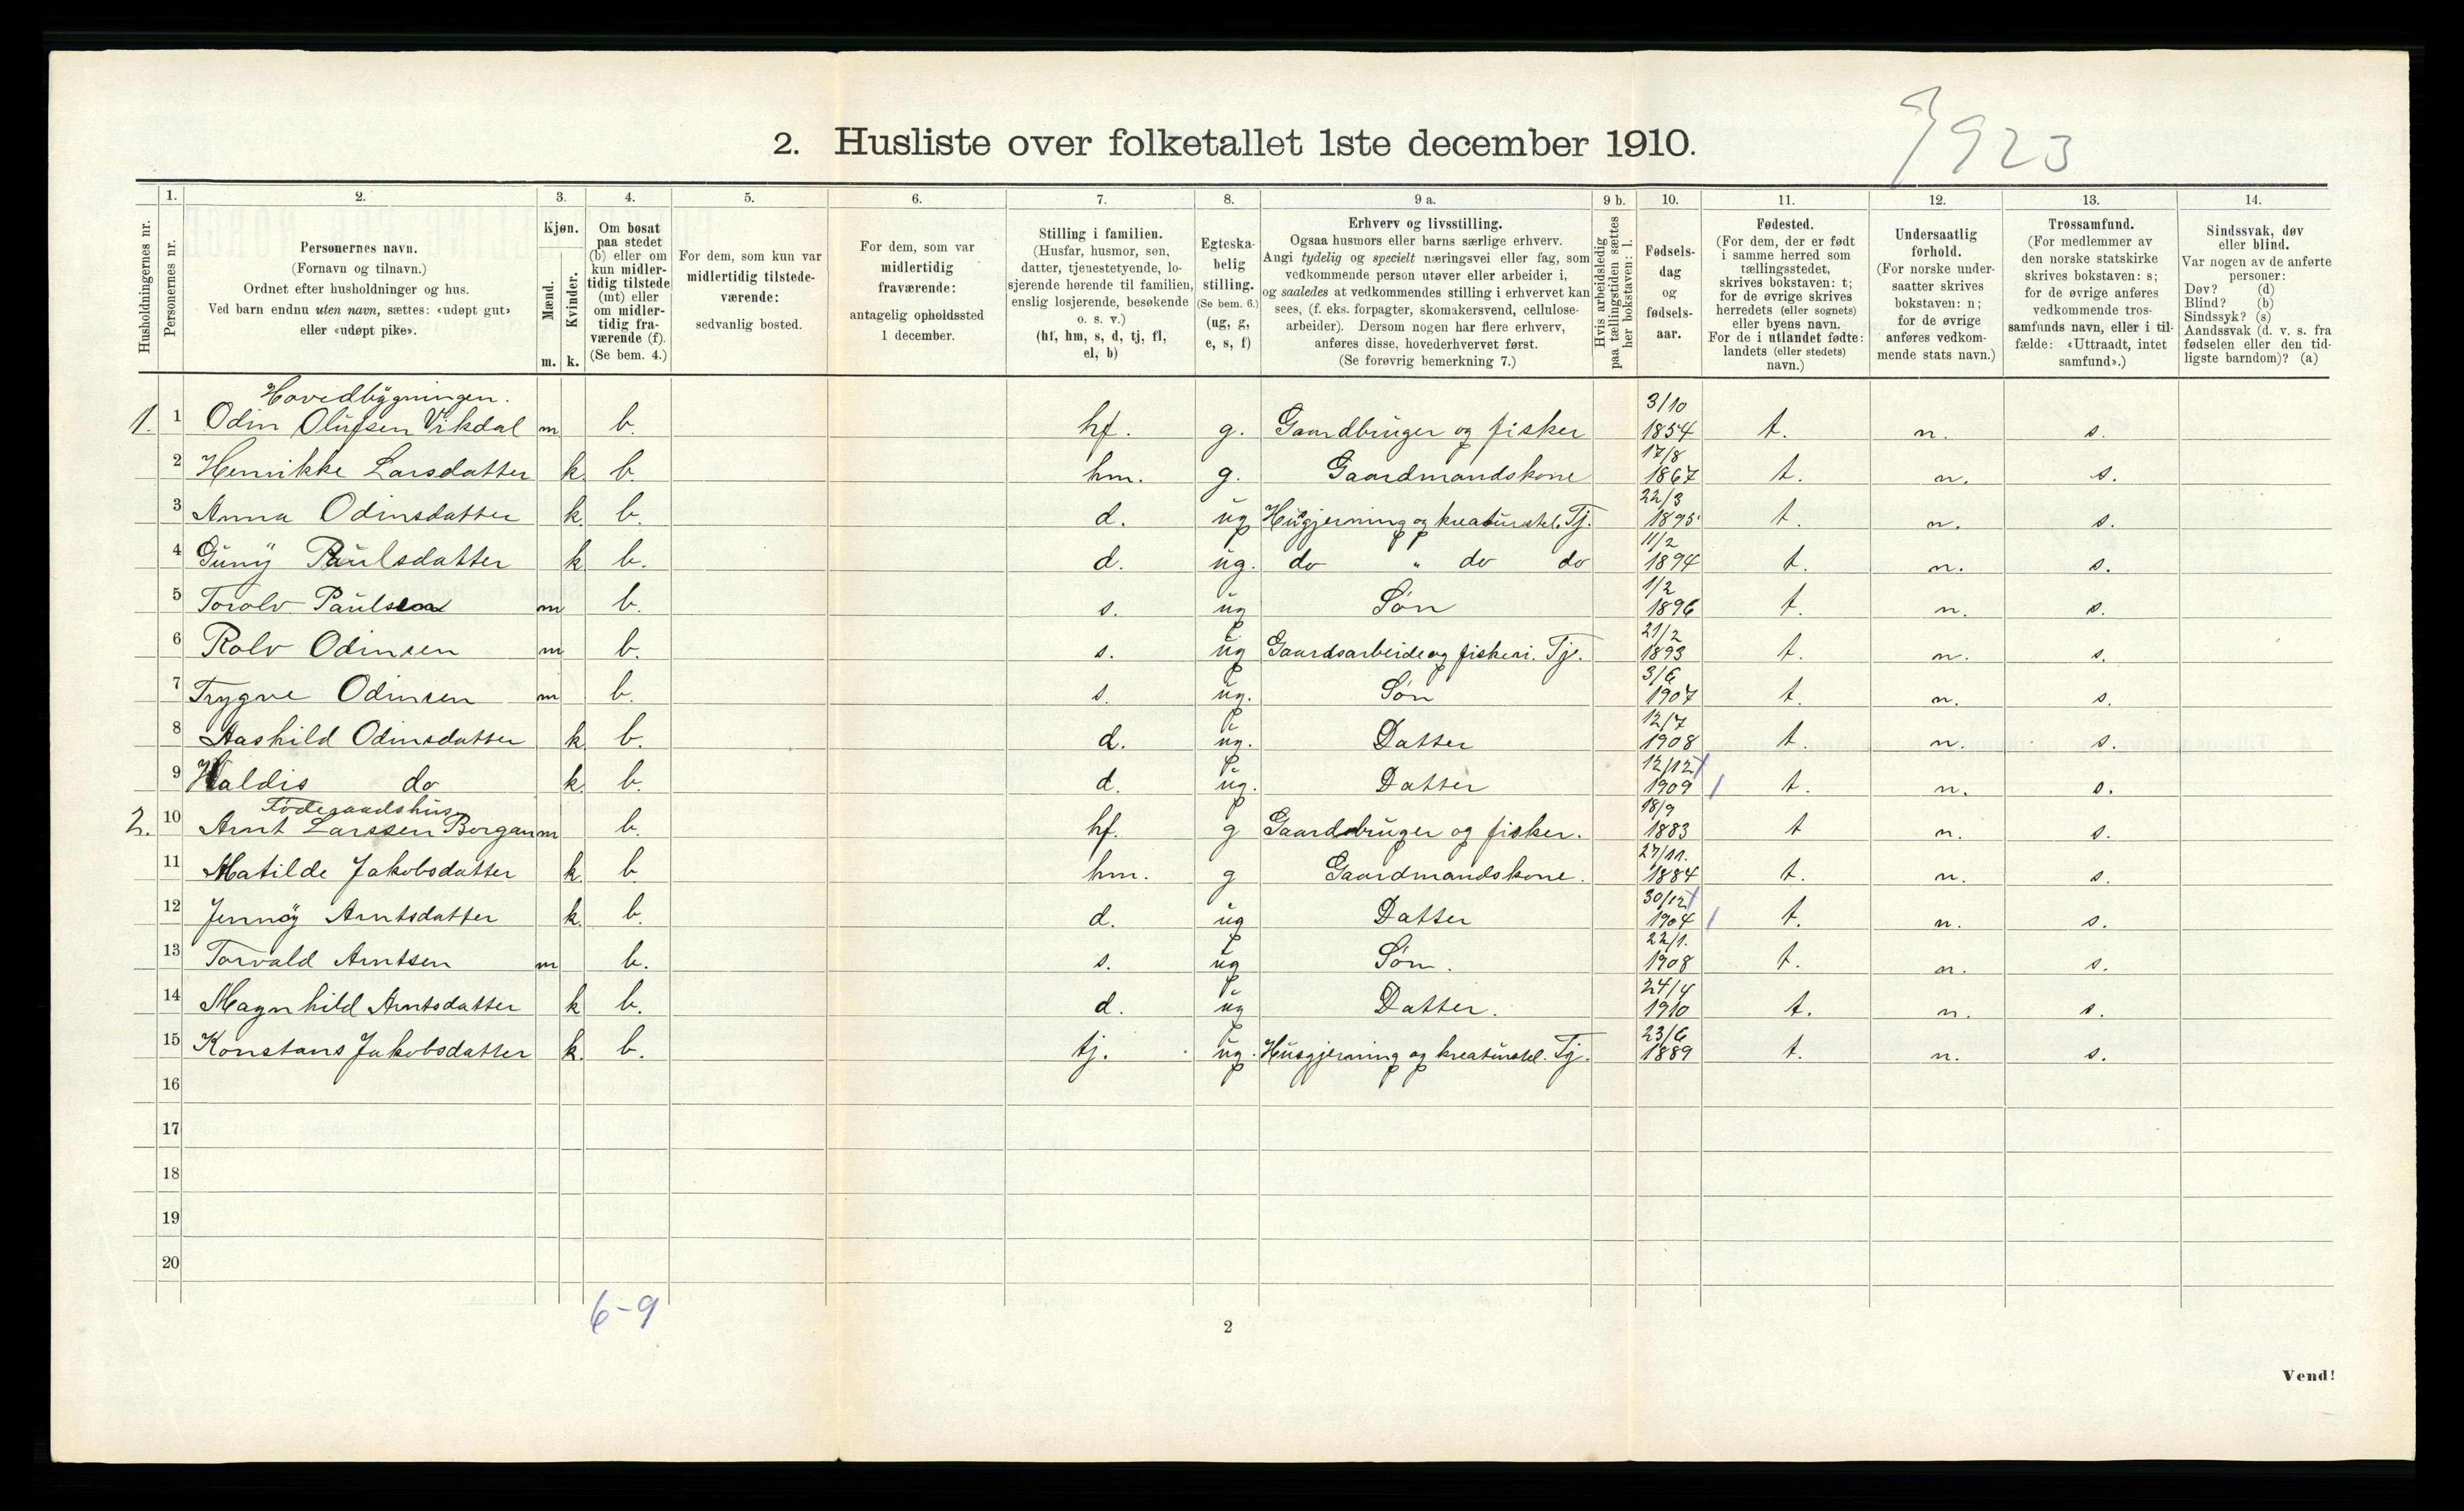 923
2. Husliste over folketallet 1ste december 1910.
Husholdningernes nr.
1. Personernes nr.
2. Personernes navn.
(Fornavn og tilnavn.)
Ordnet efter husholdninger og hus.
Ved barn endnu uten navn, sættes: «udøpt gut»
eller «udøpt pike».
3. Kjøn.
Mænd. m.
Kvinder. k.
4. Om bosat
paa stedet
(b) eller om
kun midler-
tidig tilstede
(mt) eller
om midler-
tidig fra-
værende (f).
(Se bem. 4.)
5. For dem, som kun var
midlertidig tilstede-
værende:
sedvanlig bosted.
6. For dem, som var
midlertidig
fraværende:
antagelig opholdssted
1 december.
7. Stilling i familien.
(Husfar, husmor, søn,
datter, tjenestetyende, lo-
sjerende hørende til familien,
enslig losjerende, besøkende
o. s. v.)
(hf, hm, s, d, tj, fl,
el, b)
8. Egteska-
belig
stilling.
(Se bem. 6.)
(ug, g,
e, s, f)
9 a. Erhverv og livsstilling.
Ogsaa husmors eller barns særlige erhverv.
Angi tydelig og specielt næringsvei eller fag, som
vedkommende person utøver eller arbeider i,
og saaledes at vedkommendes stilling i erhvervet kan
sees, (f. eks. forpagter, skomakersvend, cellulose-
arbeider). Dersom nogen har flere erhverv,
anføres disse, hovederhvervet først.
(Se forøvrig bemerkning 7.)
9 b. Hvis arbeidsledig
paa tællingstiden sættes
her bokstaven: l.
10. Fødsels-
dag
og
fødsels-
aar.
11. Fødested.
(For dem, der er født
i samme herred som
tællingsstedet,
skrives bokstaven: t;
for de øvrige skrives
herredets (eller sognets)
eller byens navn.
For de i utlandet fødte:
landets (eller stedets)
navn.)
12. Undersaatlig
forhold.
(For norske under-
saatter skrives
bokstaven: n;
for de øvrige
anføres vedkom-
mende stats navn.)
13. Trossamfund.
(For medlemmer av
den norske statskirke
skrives bokstaven: s;
for de øvrige anføres
vedkommende tros-
samfunds navn, eller i til-
fælde: «Uttraadt, intet
samfund».)
14. Sindssvak, døv
eller blind.
Var nogen av de anførte
personer:
Døv? (d)
Blind? (b)
Sindssyk? (s)
Aandssvak (d. v. s. fra
fødselen eller den tid-
ligste barndom)? (a)
Hovedbygningen.
1. 1 Odin Olufsen Vikdal m b. hf. g. Gaardbruger og fisker 3/10 1854 t. n. s.
2 Henrikke Larsdatter k. b. hm. g. Gaardmandskone 17/8 1867 t. n. s.
3 Anna Odinsdatter k. b. d. ug Husgjerning og kreaturstel. Tj. 22/3 1895 t. n. s.
4 Guny Paulsdatter k b. d. ug. do " do do 11/2 1894 t. n. s.
5 Torolv Paulsen m b. s. ug Søn 1/2 1896 t. n. s.
6 Rolv Odinsen m b. s. ug Gaardsarbeide og fiskeri. Tje. 21/2 1893 t. n. s.
7 Trygve Odinsen m b. s. ug. Søn 3/6 1907 t. n. s.
8 Aashild Odinsdatter k. b. d. ug. Datter 12/7 1908 t. n. s.
9 Haldis do k. b. d. ug. Datter 12/12 1909 t. n. s.
Føderaadshus
2. 10 Arnt Larssen Borgan m b. hf. g Gaardsbruger og fisker. 18/9 1883 t n. s.
11 Matilde Jakobsdatter k. b. hm. g Gaardmandskone. 27/11. 1884 t. n. s.
12 Jennøy Arntsdatter k. b. d. ug Datter 30/12 1904 t. n. s.
13 Torvald Arntsen m b. s. ug Søn. 22/1. 1908 t. n. s.
14 Magnhild Arntsdatter k b. d. ug Datter. 24/4 1910 t. n. s.
15 Konstans Jakobsdatter k. b. tj. ug. Husgjerning og kreaturstel. Tj. 23/6 1889 t. n. s.
16
17
18
19
20
6-9
2
Vend!